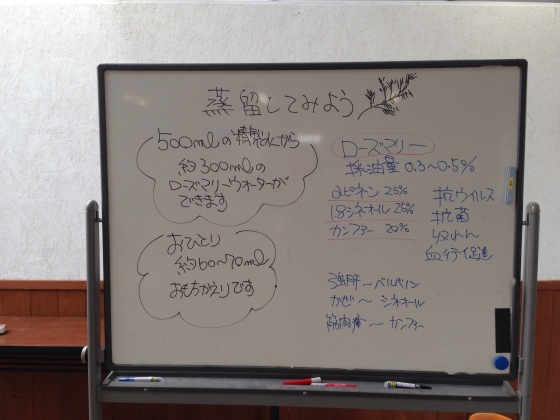 蒸留してみよう
500mlの精製水から
約300mlの
ローズマリーウォーターが
できます
おひとり
約60〜70ml
お持ちかえりです
ローズマリー
採油量 0.3〜0.5%
αピネン 25%
1.8シネオール 25%
カンファー 20%
抗ウイルス
抗菌
収れん
血行促進
強肝〜ベルベノン
かぜ〜シネオール
筋肉痛〜カンファー